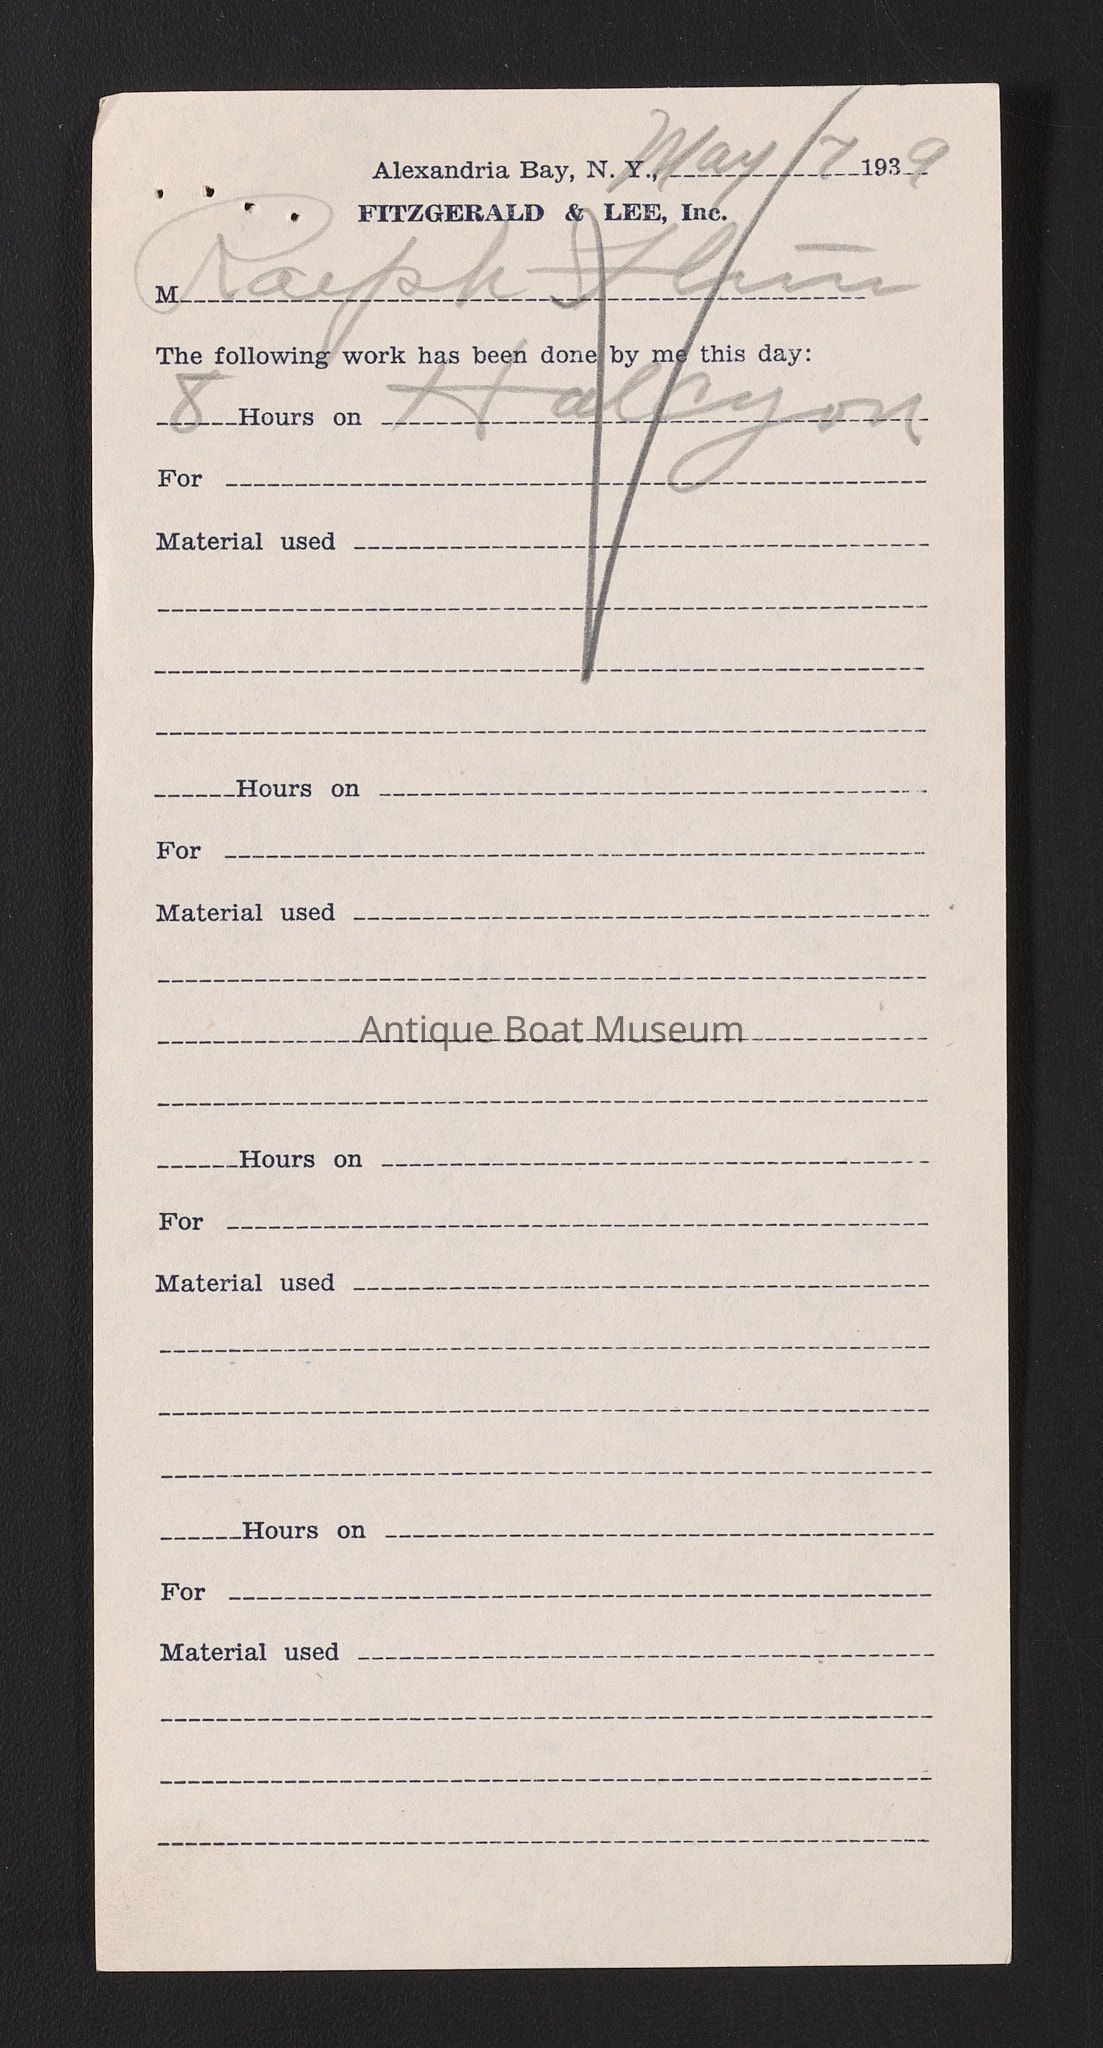 Alexandria Bay, N. Y., May 7 1939
FITZGERALD & LEE, Inc.
M Ralph Flynn
The following work has been done by me this day:
8 Hours on Halcyon
For
Material used
Hours on
For
Material used
Antique Boat Museum
Hours on
For
Material used
Hours on
For
Material used